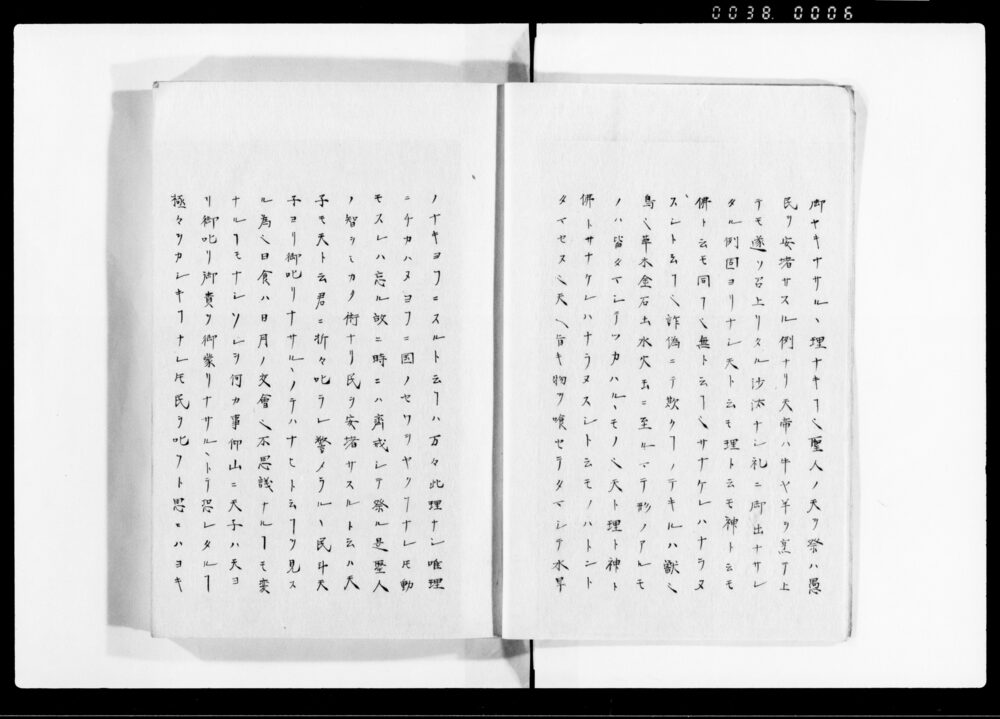 0038. 0006
御ヤキナサル、理ナキヿ也聖人ノ天ヲ祭ハ愚
民ヲ安堵サスル例ナリ天帝ハ牛ヤ羊ヲ烹テ上
テモ遂ソ召上リタル沙汰ナシ礼ニ御出ナサレ
タル例固ヨリナシ天ト云モ理ト云モ神ト云モ
佛ト云モ同ヿ也無ト云ヿ也サナケレハナラヌ
スレト云ヿ也詐偽ニテ欺クヿノテキルハ獣也
鳥也草木金石土水火虫ニ至ルマテ形ノアルモ
ノハ皆タマシテツカハル、モノ也天ト理ト神ト
佛トサナケレハナラヌスレト云モノハトント
タマセヌ也天ヘ旨キ物ヲ喰セテタマシテ水旱
ノナキヨフニスルト云ヿハ万々此理ナシ唯理
ニチカハヌヨフニ国ノセワヲヤクヿナレ𪜈動
モスレハ忘ル故ニ時ニハ齊戒シテ祭ル是聖人
ノ智ヲミカク術ナリ民ヲ安堵サスルト云ハ天
子モ天ト云君ニ折々叱ラレ警メラル、民斗天
子ヨリ御叱リナサル、ノテハナヒト云ヿヲ見ス
ル為也日食ハ日月ノ交會也不思議ナルヿモ変
ナルヿモナシソレヲ何カ事仰山ニ天子ハ天ヨ
リ御叱リ御責ヲ御蒙リナサル、トテ恐レタルヿ
極々ヲカシキヿナレ𪜈民ヲ叱ヲト思ヒハヨキ